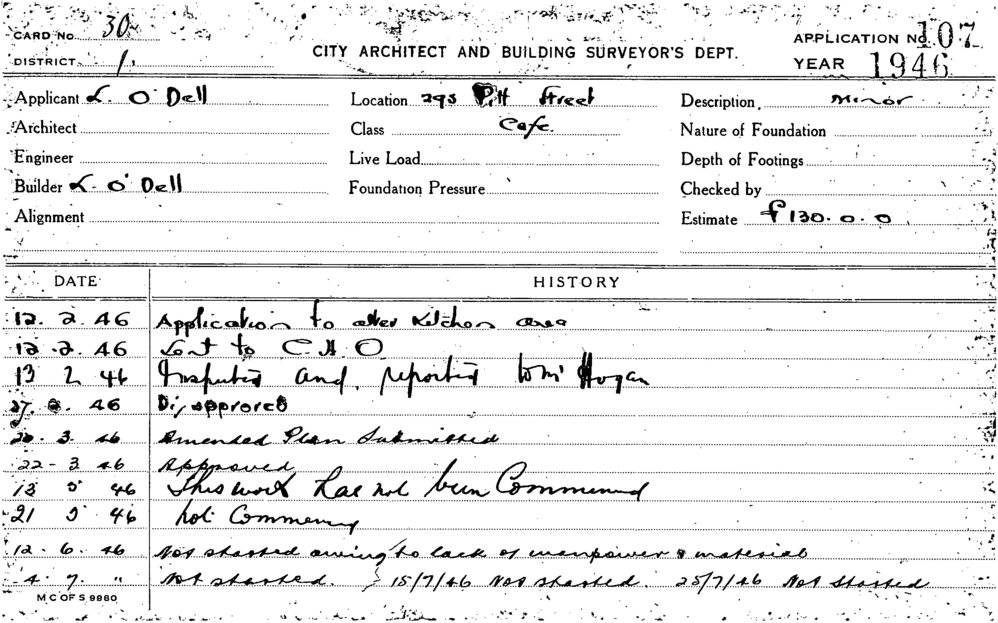 CARD No 30
DISTRICT 1.
CITY ARCHITECT AND BUILDING SURVEYOR'S DEPT.
APPLICATION No. 107
YEAR 1946
Applicant L. O'Dell Location 293 Pitt Street Description Minor
Architect Class Cafe. Nature of Foundation
Engineer Live Load Depth of Footings
Builder L. O'Dell Foundation Pressure Checked by
Alignment Estimate £130.0.0
DATE HISTORY
12. 2. 46 Application to alter Kitchen area
12. 2. 46 Sent to C.H.O.
13 2 46 Inspected and reported to Mr Hogan
27. 2. 46 Disapproved
20. 3. 46 Amended Plan Submitted
22-3 46 Approved
13 5 46 This work has not been Commenced
21 5 46 not Commenced
12. 6. 46 Not started owing to lack of manpower & material
4. 7. " Not started. 15/7/46 Not started. 25/7/46 Not Started
M C OF S 9860